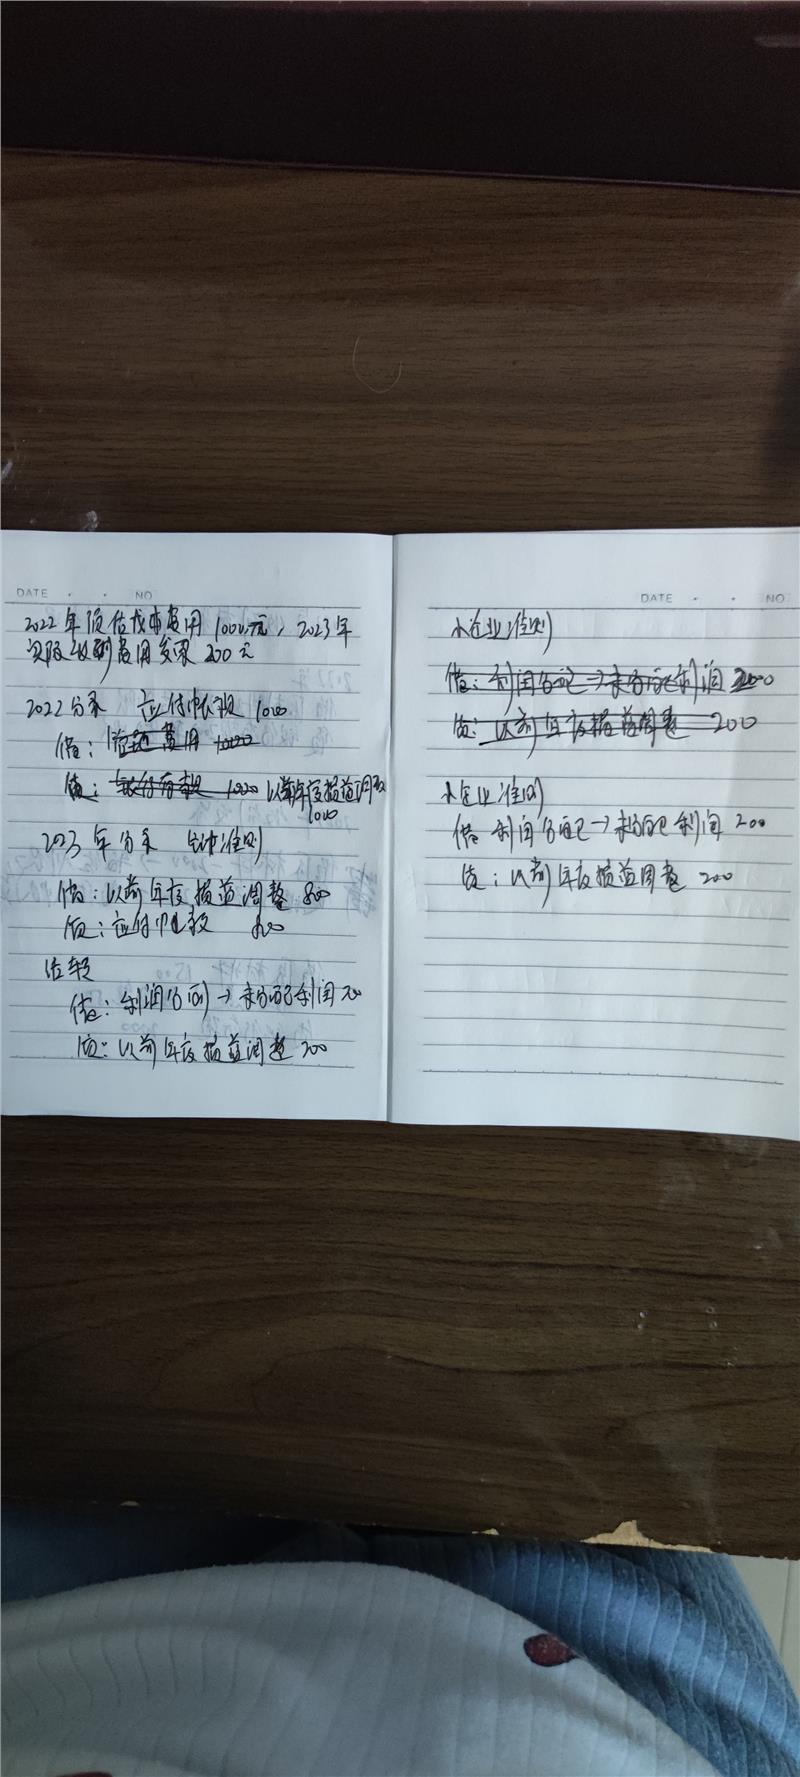 DATE · · NO
2022年预估成本费用1000元，2023年
实际收到费用发票200元
2022分录 应付帐款 1000
借：管理费用 1000
贷： 1000 以前年度损益调整
1000
2023年分录 会计准则
借：以前年度损益调整 800
贷：应付帐款 800
结转
借：利润分配→未分配利润 200
贷：以前年度损益调整 200
DATE · · NO
小企业准则
借：利润分配→未分配利润 200
贷：以前年度损益调整 200
小企业准则
借 利润分配→未分配利润 200
贷：以前年度损益调整 200